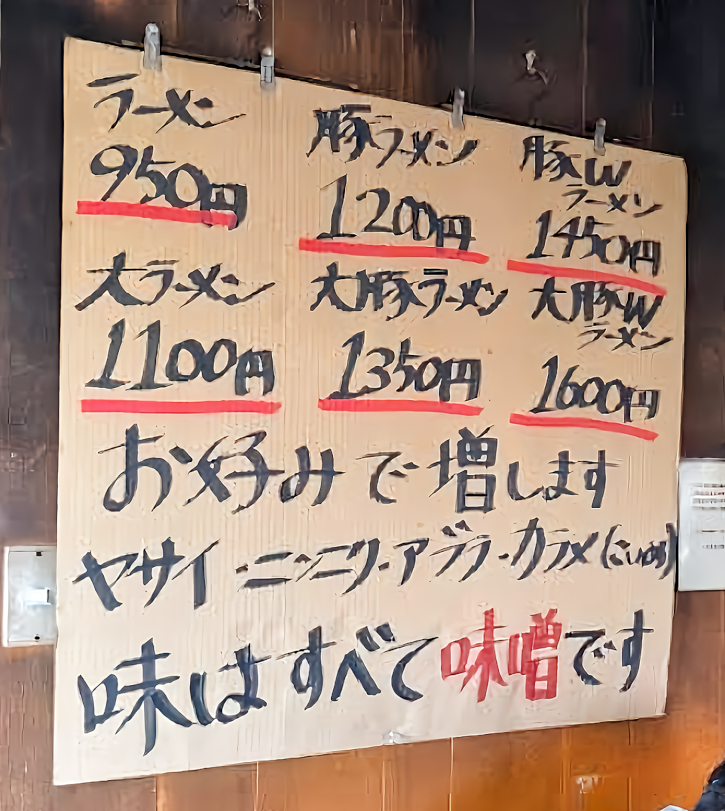 ラーメン
950円
豚ラーメン
1200円
豚W
ラーメン
1450円
大ラーメン
1100円
大豚ラーメン
1350円
大豚W
ラーメン
1600円
お好みで増します
ヤサイ-ニンニク-アブラ-カラメ(こいめ)
味はすべて味噌です